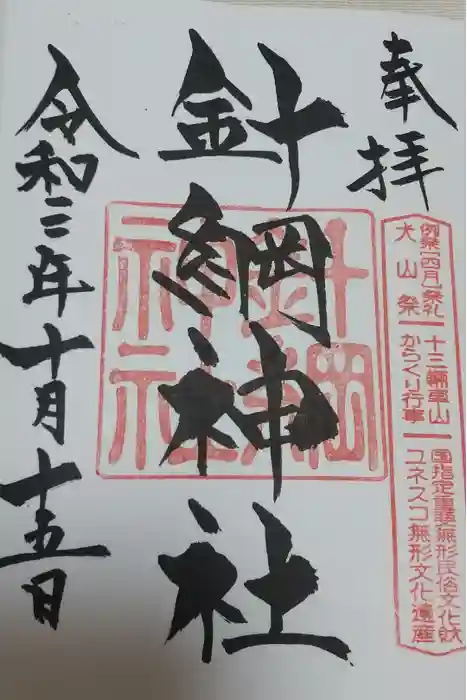 奉拝
例祭「四月」祭礼
犬山祭
十三輛車山
からくり行事
国指定重要無形民俗文化財
ユネスコ無形文化遺産
針綱神社
針綱
神社
令和二年十月十五日